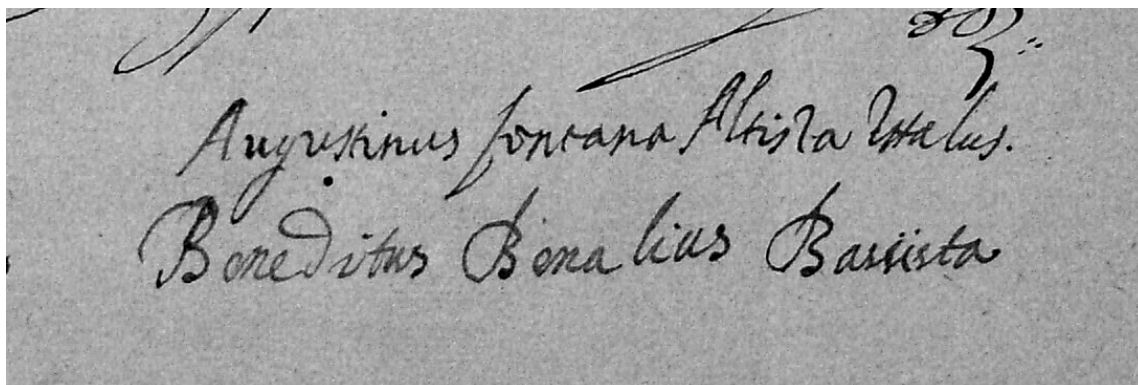 Augustinus fontana Altista Ittalus.
Boneditus Bonalius Bassista